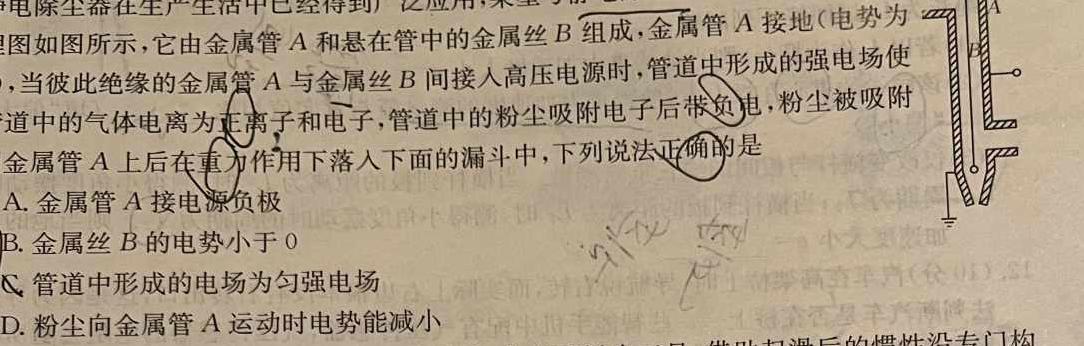 电除尘器在生产生活中已经得到广泛应用,
图如图所示,它由金属管 A 和悬在管中的金属丝 B 组成,金属管 A 接地(电势为
),当彼此绝缘的金属管 A 与金属丝 B 间接入高压电源时,管道中形成的强电场使
道中的气体电离为正离子和电子,管道中的粉尘吸附电子后带负电,粉尘被吸附
金属管 A 上后在重力作用下落入下面的漏斗中,下列说法正确的是
A. 金属管 A 接电源负极
B. 金属丝 B 的电势小于 0
C. 管道中形成的电场为匀强电场
D. 粉尘向金属管 A 运动时电势能减小
A
B
借助起滑后的惯性沿专门构